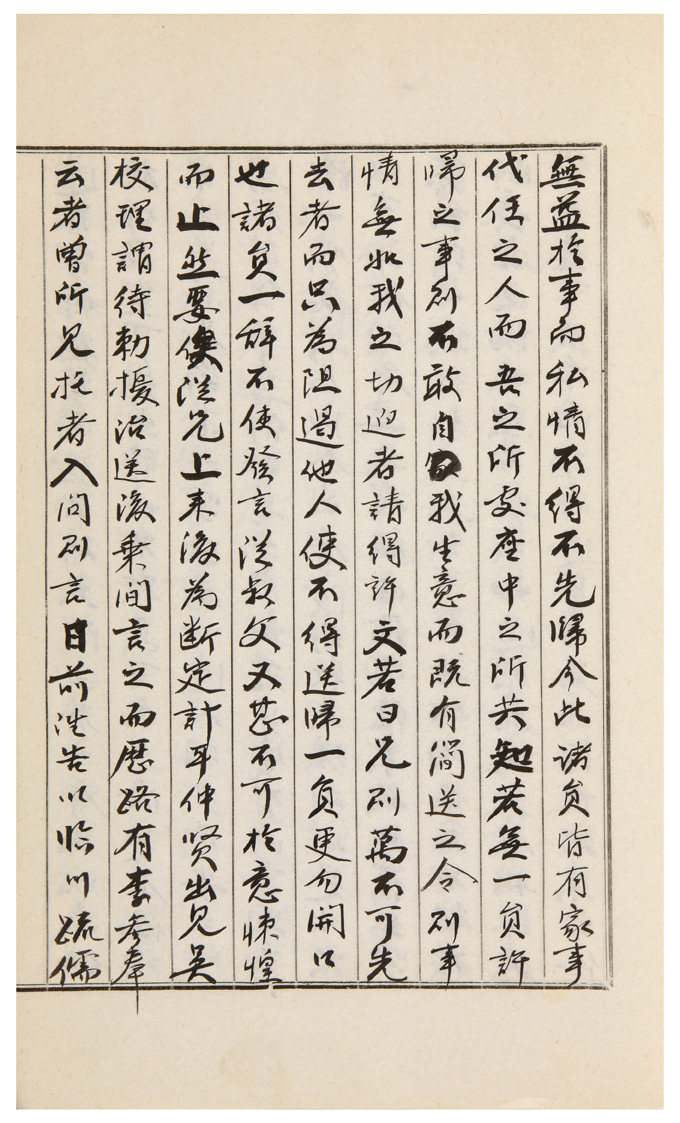 無益於事而私情不得不先歸今此諸員皆有家事
代任之人而吾之所處座中之所共知若無一員許
歸之事則不敢自我生意而既有簡送之令則事
情無如我之切迫者請得許文若曰兄則萬不可先
去者而只為阻遏他人使不得送歸一員更勿開口
也諸員一辭不使發言從叔父又甚不可於意悚惶
而止然要俟從兄上來後為斷定計耳仲賢出見吳
校理謂待勅擾治送後乘間言之而歷路有李參奉
云者曾所見托者入問則言目前洪告以臨川疏儒